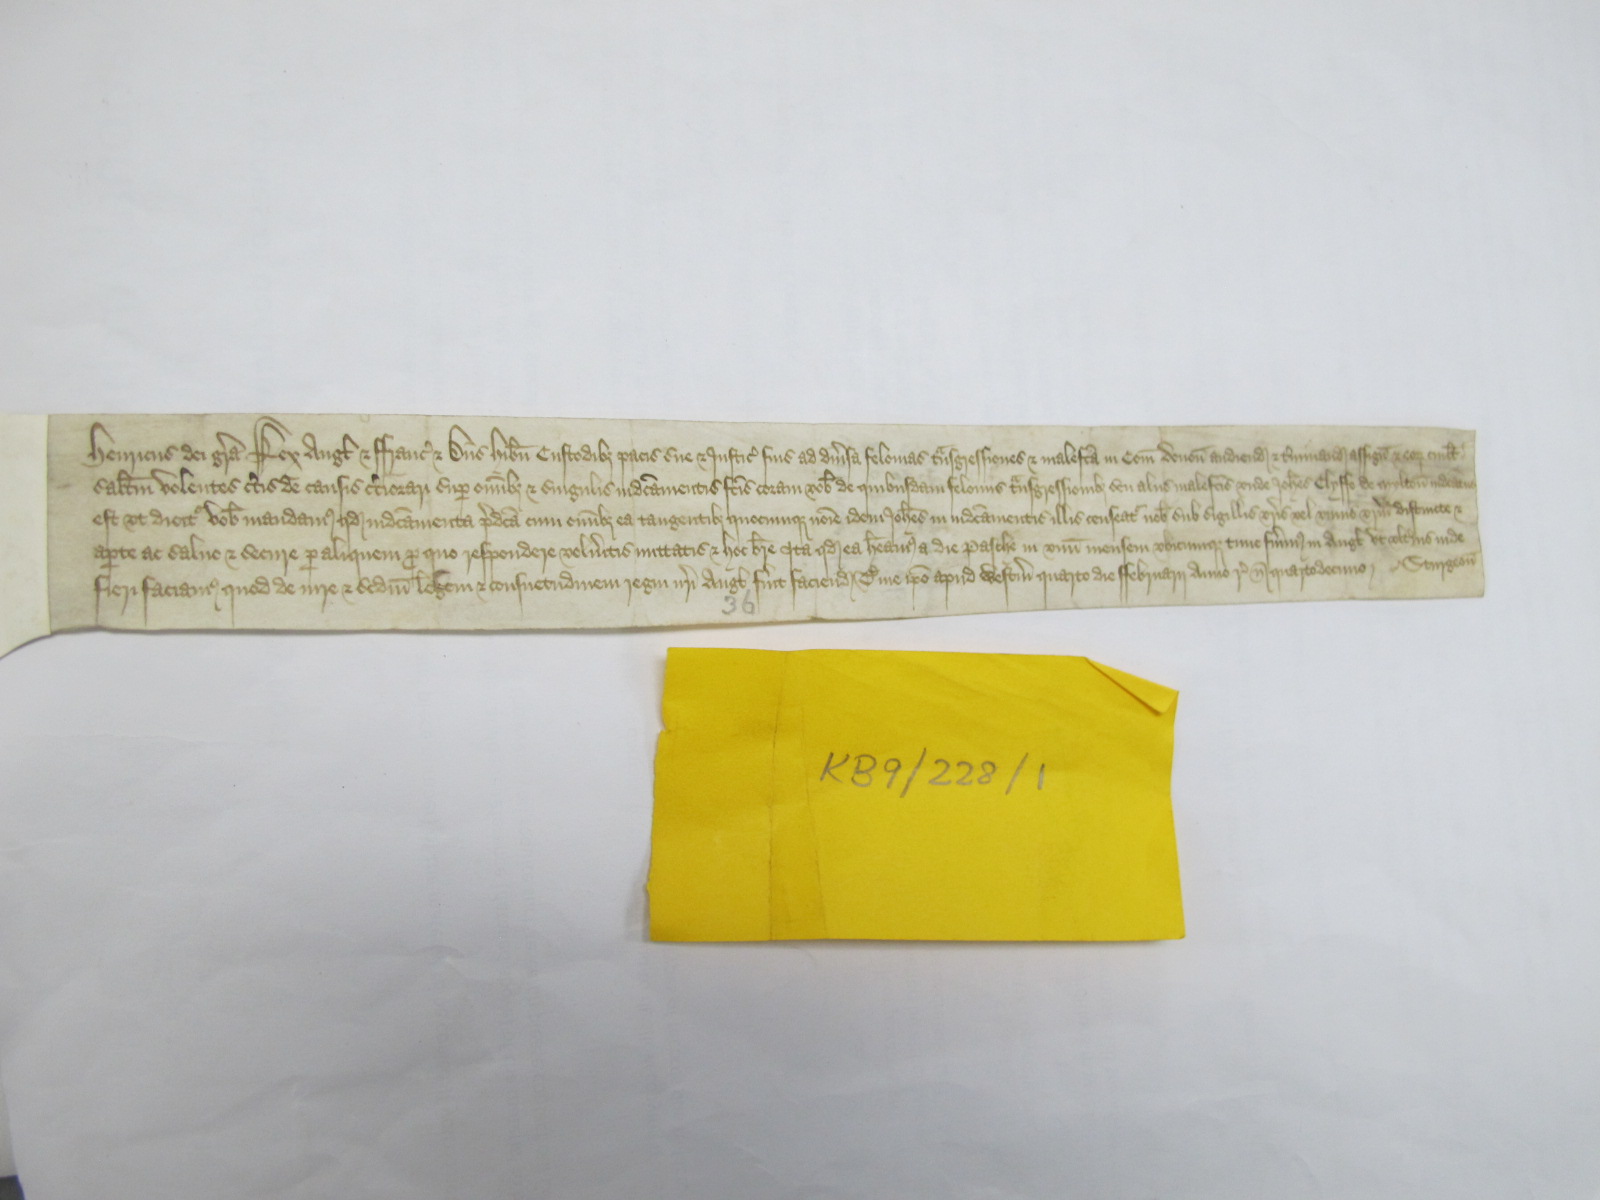 Henricus dei gra Rex Angl & ffranc & Dns hibn Custodibz pacis sue & Justic suis ad diusa felonias tnsgressiones & malefca in Com Deuon audiend & tminand assign & eor cuilt
saltm volentes ctis de causis ctiorari sup omibz & singulis indcamentis fcis coram vob de quibusdam feloniis tnsgressionibz seu aliis malefcis vnde Johes Clysse de indictatus
est vt dicit vob mandam qd indcamenta pdca cum omibz ea tangentibz quocumqz noie idem Johes in indcamentis illis censeat nob sub sigillis vris vel vnius vrm distincte &
apte ac saluo & secure p aliquem p quo respondere volutis mittatis & hoc bre Ita qd ea heam a die Pasche in vnu mensem vbicumqz tunc fuim in Angl vt vltius inde
fieri faciam quod de iure & scdm legem & consuetudinem regni nri Angl fuit faciend T me ipo apud Westm quarto die ffebruarii Anno r n quartodecimo Sturgeon
36
KB9/228/1